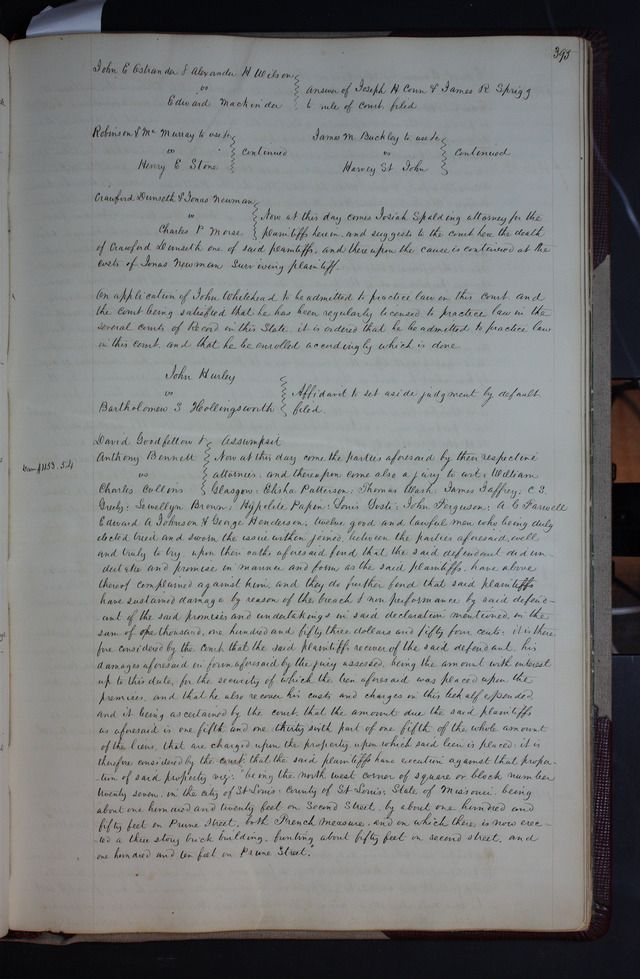 393
John E Ostrander & Alexander H Wilson
vs
Edward Mackinder
answer of Joseph H Conn & James R Sprigg
to rule of court filed
Robinson & Mc Murray to use &c
vs
Henry E Stone
continued
James M Buckley to use &c
vs
Harvey St John
continued
Crawford Dunseth & Jonas Newman
vs
Charles P Morse
Now at this day comes Josiah Spalding attorney for the
plaintiffs herein, and suggests to the court here the death
of Crawford Dunseth one of said plaintiffs, and thereupon the cause is continued at the
costs of Jonas Newman Surviving plaintiff.
On application of John Whitehead to be admitted to practice law in this court and
the court being satisfied that he has been regularly licensed to practice law in the
several courts of Record in this State it is ordered that he be admitted to practice law
in this court, and that he be enrolled accordingly which is done
John Hurley
vs
Bartholomew S Hollingsworth
Affidavit to set aside judgment by default
filed.
David Goodfellow &
Anthony Bennett
vs
Charles Collins
Dam $1153.54
Assumpsit
Now at this day come the parties aforesaid by their respective
attornies, and thereupon come also a jury to wit, William
Glasgow; Elisha Patterson; Thomas Wash; James Jaffrey; C. S.
Greely; Sewellyn Brown; Hypolite Papin; Louis Goste; John Ferguson; A C Farwell
Edward A Johnson & George Henderson, twelve good and lawful men who being duly
elected tried and sworn the issue within joined, between the parties aforesaid, well
and truly to try, upon their oaths aforesaid find that the said defendant did un-
dertake and promise in manner and form as the said plaintiffs, have above
thereof complained against him, and they do further find that said plaintiffs
have sustained damage by reason of the breach & non performance by said defend-
-ant of the said promises and undertakings in said declaration mentioned, in the
sum of one thousand, one hundred and fifty three dollars and fifty four cents: it is there
fore considered by the Court that the said plaintiffs recover of the said defendant, his
damages aforesaid in form aforesaid by the jury assessed, being the amount with interest
up to this date, for the security of which the lien aforesaid was placed upon the
premises, and that he also recover his costs and charges in this behalf expended
and it being ascertained by the court, that the amount due the said plaintiffs
as aforesaid is one fifth and one thirty sixth part of one fifth of the whole amount
of the liens, that are charged upon the property, upon which said lien is placed: it is
therefore considered by the court that the said plaintiffs have execution against that propor-
-tion of said property viz: "being the north west corner of square or block number
twenty seven, in the city of St Louis; County of St Louis; State of Missouri being
about one hundred and twenty feet on Second Street, by about one hundred and
fifty feet on Prune Street, both French measure, and on which there is now erec-
-ted a three story brick building, fronting about fifty feet on second street, and
one hundred and ten feet on Prune Street."